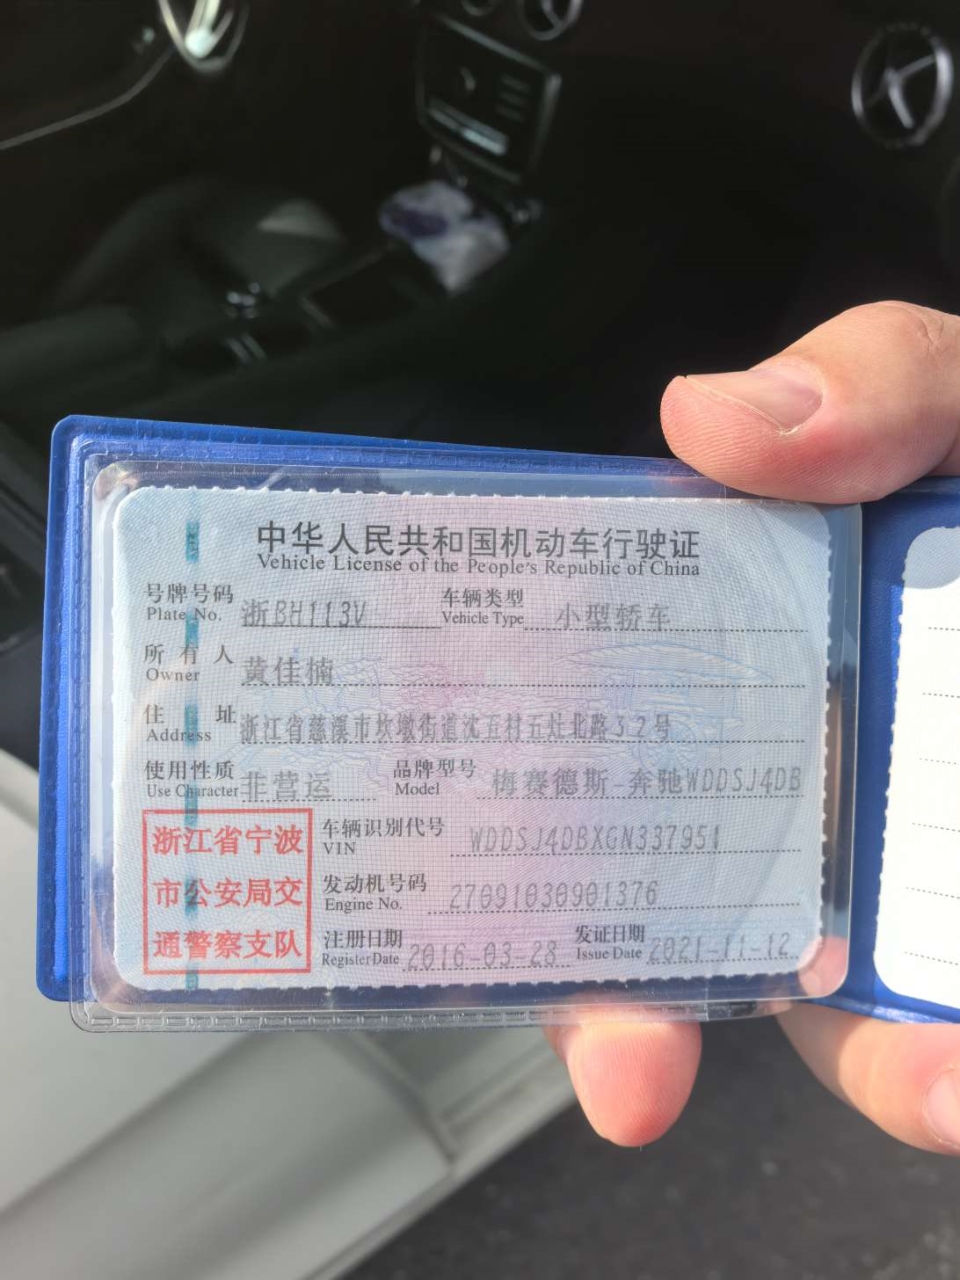 中华人民共和国机动车行驶证
Vehicle License of the People's Republic of China
号牌号码 浙BH113V 车辆类型 小型轿车
Plate No. Vehicle Type
所有人 黄佳楠
Owner
住址 浙江省慈溪市坎墩街道沈五村五灶北路32号
Address
使用性质 非营运 品牌型号 梅赛德斯-奔驰WDDSJ4DB
Use Character Model
浙江省宁波
市公安局交
通警察支队
车辆识别代号 WDDSJ4DBXGN337951
VIN
发动机号码 27091030901376
Engine No.
注册日期 2016-03-28 发证日期 2021-11-12
Register Date Issue Date